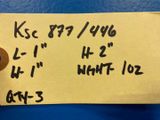 KSC 877/446
L- 1" H- 2"
W- 1" WGHT 1oz
QTY-3